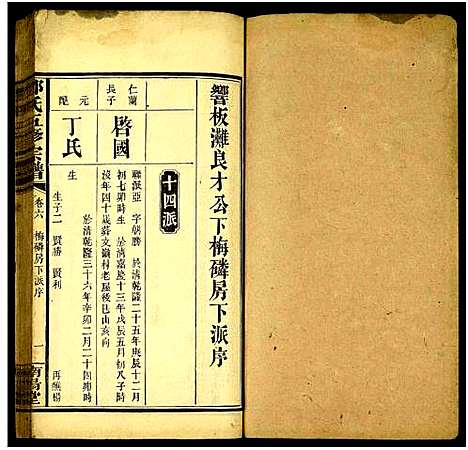 響板灘良才公下梅磷房下派序
十四派
仁蘭長子
啓國
聯派亞 字朝勝 於清乾隆二十五年庚辰十二月
初七卯時生 於清嘉慶十三年戊辰五月初八子時
沒年四十
村老屋後巳山亥向
元配
丁氏
於清乾隆三十六年辛卯二月二十四
時
生
生子二 賢勝 賢利
再
氏五修宗譜
卷六 梅磷房下派序
一
堂